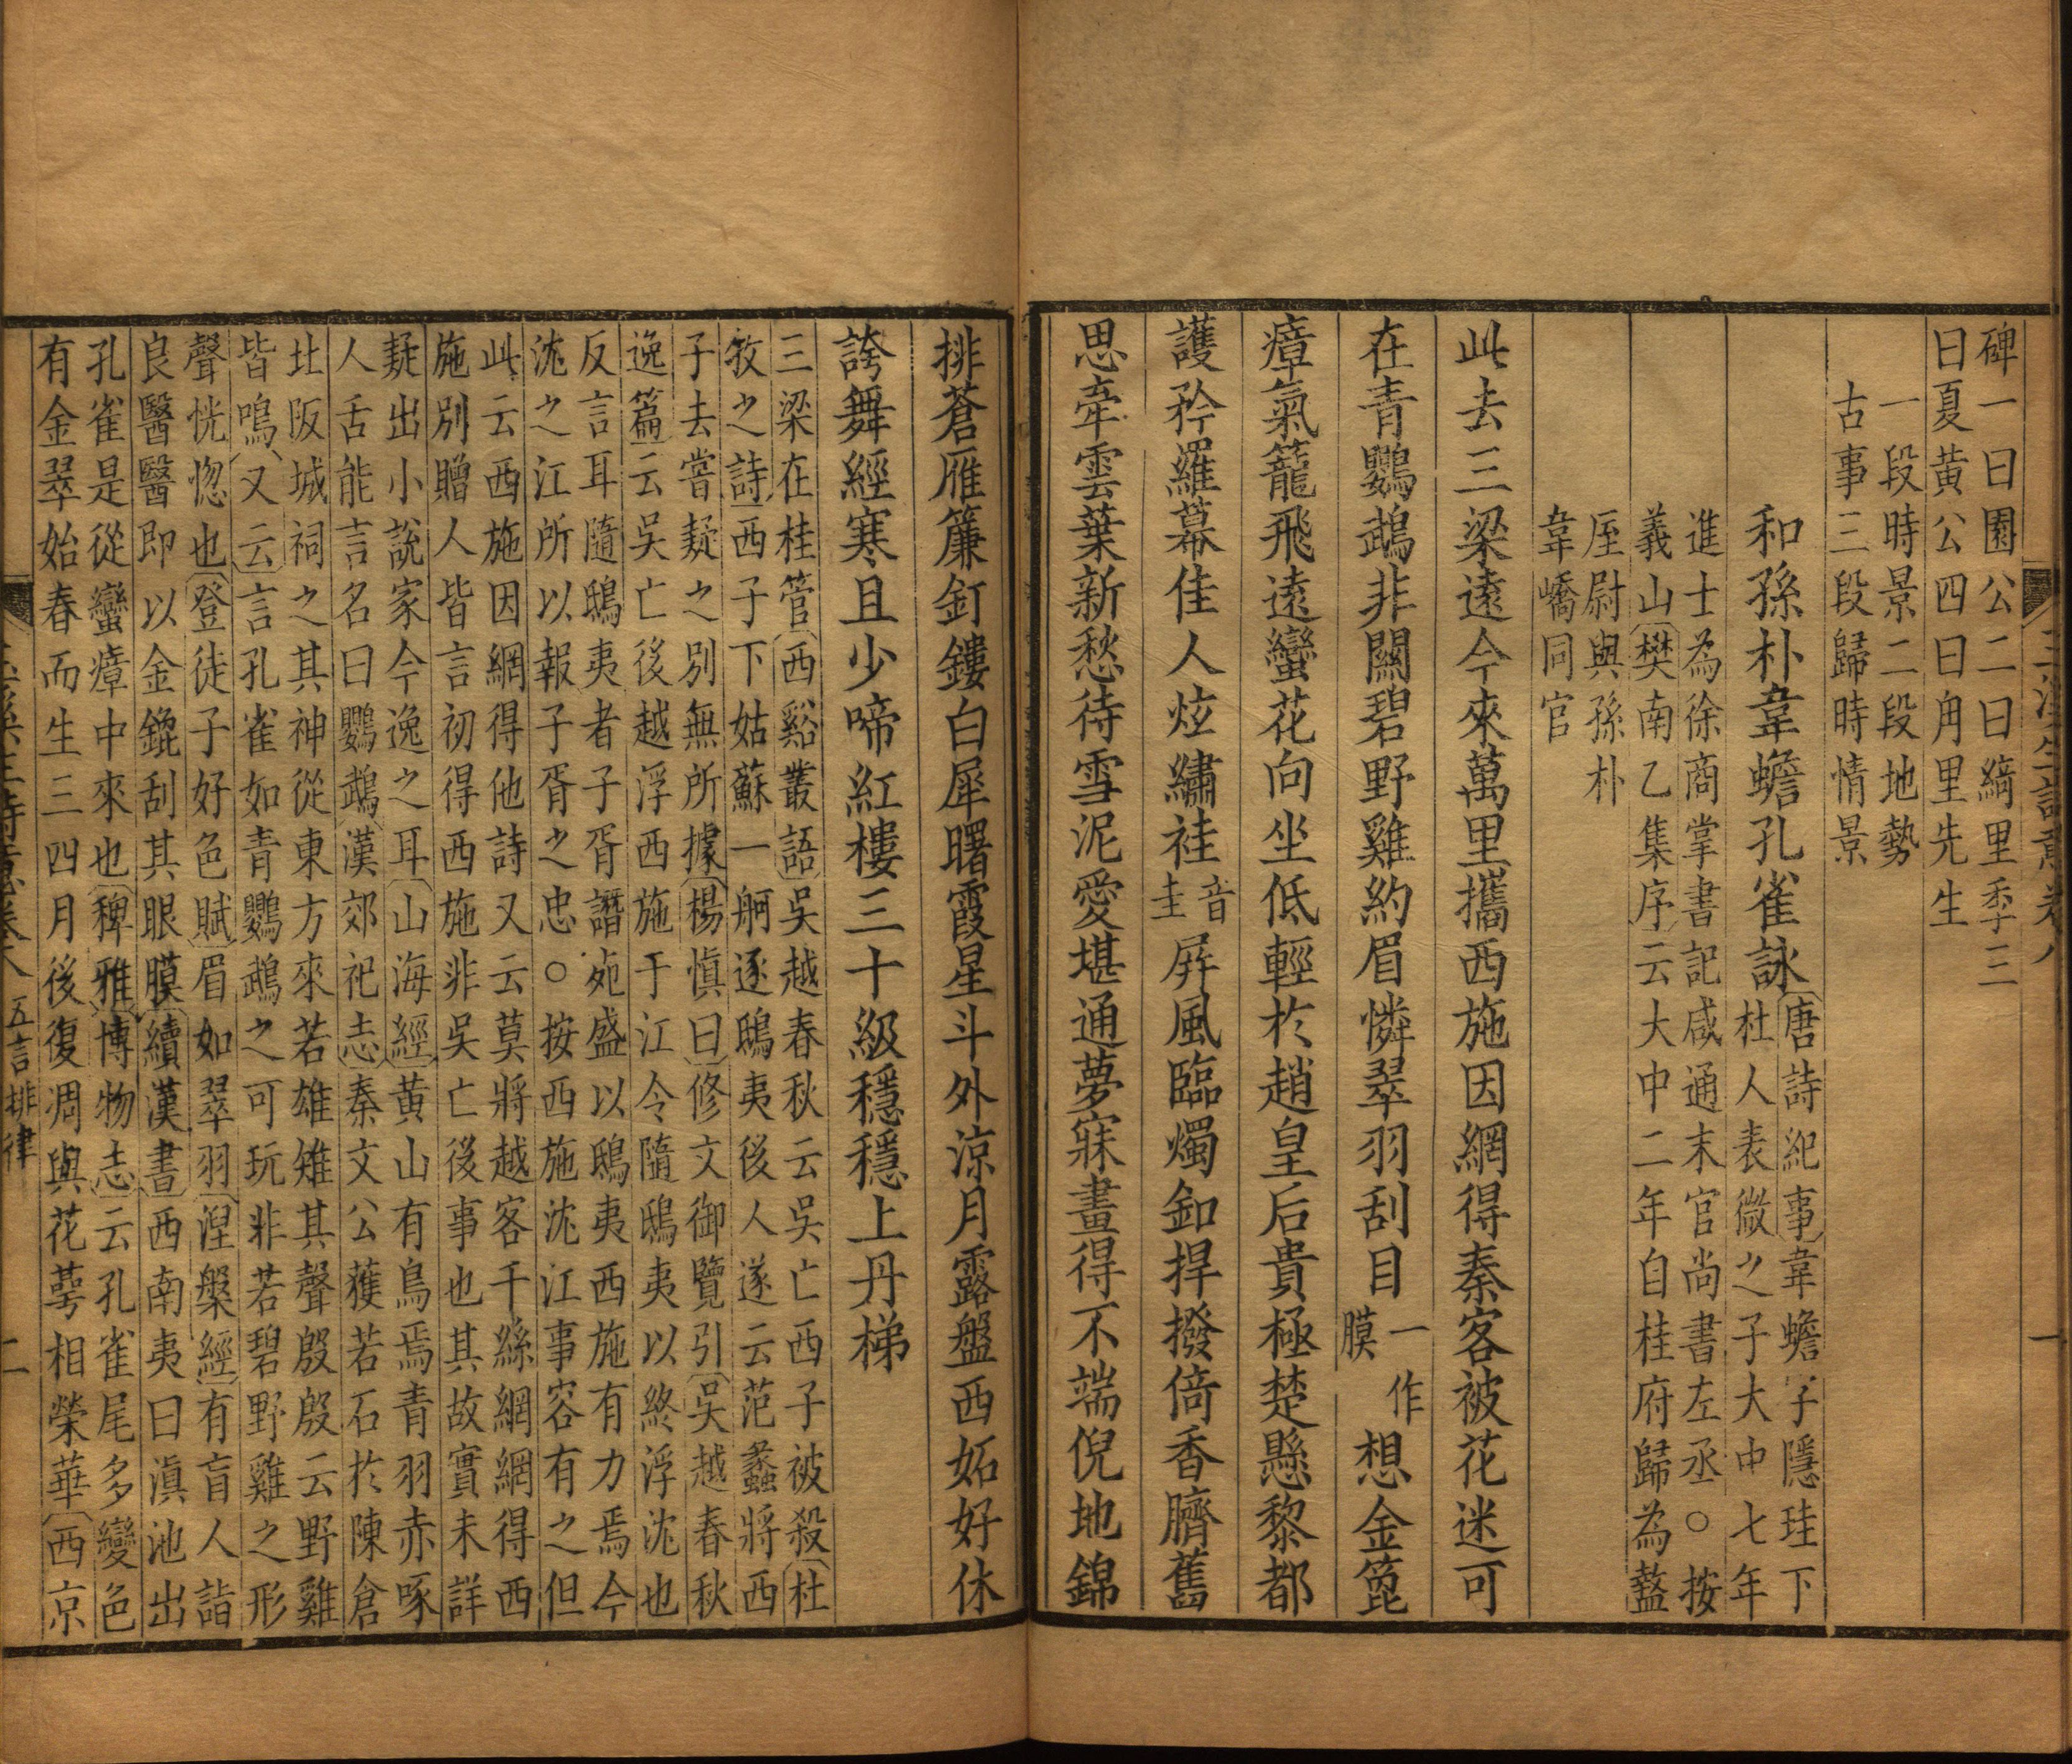 碑一曰園公二曰綺里季三
曰夏黃公四曰角里先生
一段時景二段地勢
古事三段歸時情景
和孫朴韋蟾孔雀詠
唐詩紀事韋蟾字隱珪下
杜人表微之子大中七年
進士為徐商掌書記咸通末官尚書左丞○按
義山樊南乙集序云大中二年自桂府歸為盩
厔尉與孫朴
韋嶠同官
此去三梁遠今來萬里攜西施因網得秦客被花迷可
在青鸚鵡非關碧野雞約眉憐翠羽刮目
一作
膜
想金篦
瘴氣籠飛遠蠻花向坐低輕於趙皇后貴極楚懸黎都
護矜羅幕佳人炫繡袿
音
圭
屏風臨燭釦捍撥倚香臍舊
思牽雲葉新愁待雪泥愛堪通夢寐畫得不端倪地錦
排蒼雁簾釘鏤白犀曙霞星斗外涼月露盤西妬好休
誇舞經寒且少啼紅樓三十級穩穩上丹梯
三梁在桂管西谿叢語吳越春秋云吳亡西子被殺杜
牧之詩西子下姑蘇一舸逐鴟夷後人遂云范蠡將西
子去嘗疑之別無所據楊慎曰修文御覽引吳越春秋
逸篇云吳亡後越浮西施于江令隨鴟夷以終浮沈也
反言耳隨鴟夷者子胥譖宛盛以鴟夷西施有力焉今
沈之江所以報子胥之忠○按西施沈江事容有之但
此云西施因網得他詩又云莫將越客千絲網網得西
施別贈人皆言初得西施非吳亡後事也其故實未詳
疑出小說家今逸之耳山海經黃山有鳥焉青羽赤啄
人舌能言名曰鸚鵡漢郊祀志秦文公獲若石於陳倉
北阪城祠之其神從東方來若雄雉其聲殷殷云野雞
皆鳴又云言孔雀如青鸚鵡之可玩非若碧野雞之形
聲恍惚也登徒子好色賦眉如翠羽湼槃經有盲人詣
良醫醫即以金錍刮其眼膜續漢書西南夷曰滇池出
孔雀是從蠻瘴中來也稗雅博物志云孔雀尾多變色
有金翠始春而生三四月後復凋與花萼相榮華西京
五言排律
一
二